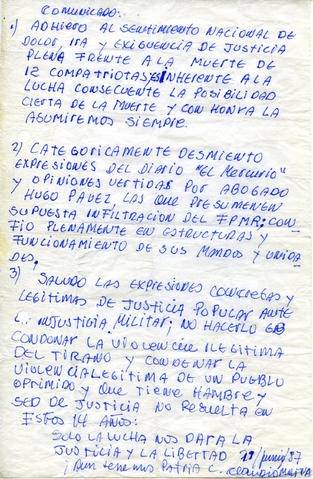 COMUNICADO:
1) ADHIERO AL SENTIMIENTO NACIONAL DE
DOLOR, IRA Y EXIGUENCIA DE JUSTICIA
PLENA FRENTE A LA MUERTE DE
12 COMPATRIOTAS, ES INHERENTE A LA
LUCHA CONSECUENTE LA POSIBILIDAD
CIERTA DE LA MUERTE Y CON HONRA LA
ASUMIREMOS SIEMPRE.
2) CATEGORICAMENTE DESMIENTO
EXPRESIONES DEL DIARIO "EL MERCURIO"
Y OPINIONES VERTIDAS POR ABOGADO
HUGO PAVEZ, LAS QUE PRESUMEN EN
SUPUESTA INFILTRACION DEL FPMR; CON
FIO PLENAMENTE EN ESTRUCTURAS Y
FUNCIONAMIENTO DE SUS MANDOS Y UNIDA
DES.
3) SALUDO LAS EXPRESIONES CONCRETAS Y
LEGITIMAS DE JUSTICIA POPULAR ANTE
INJUSTICIA MILITAR; NO HACERLO ES
CONDONAR LA VIOLENCIA ILEGITIMA
DEL TIRANO Y CONDENAR LA
VIOLENCIA LEGITIMA DE UN PUEBLO
OPRIMIDO Y QUE TIENE HAMBRE Y
SED DE JUSTICIA NO RESUELTA EN
ESTOS 14 AÑOS:
SOLO LA LUCHA NOS DARA LA
JUSTICIA Y LA LIBERTAD junio/87
¡Aun tenemos Patria C. Claudio